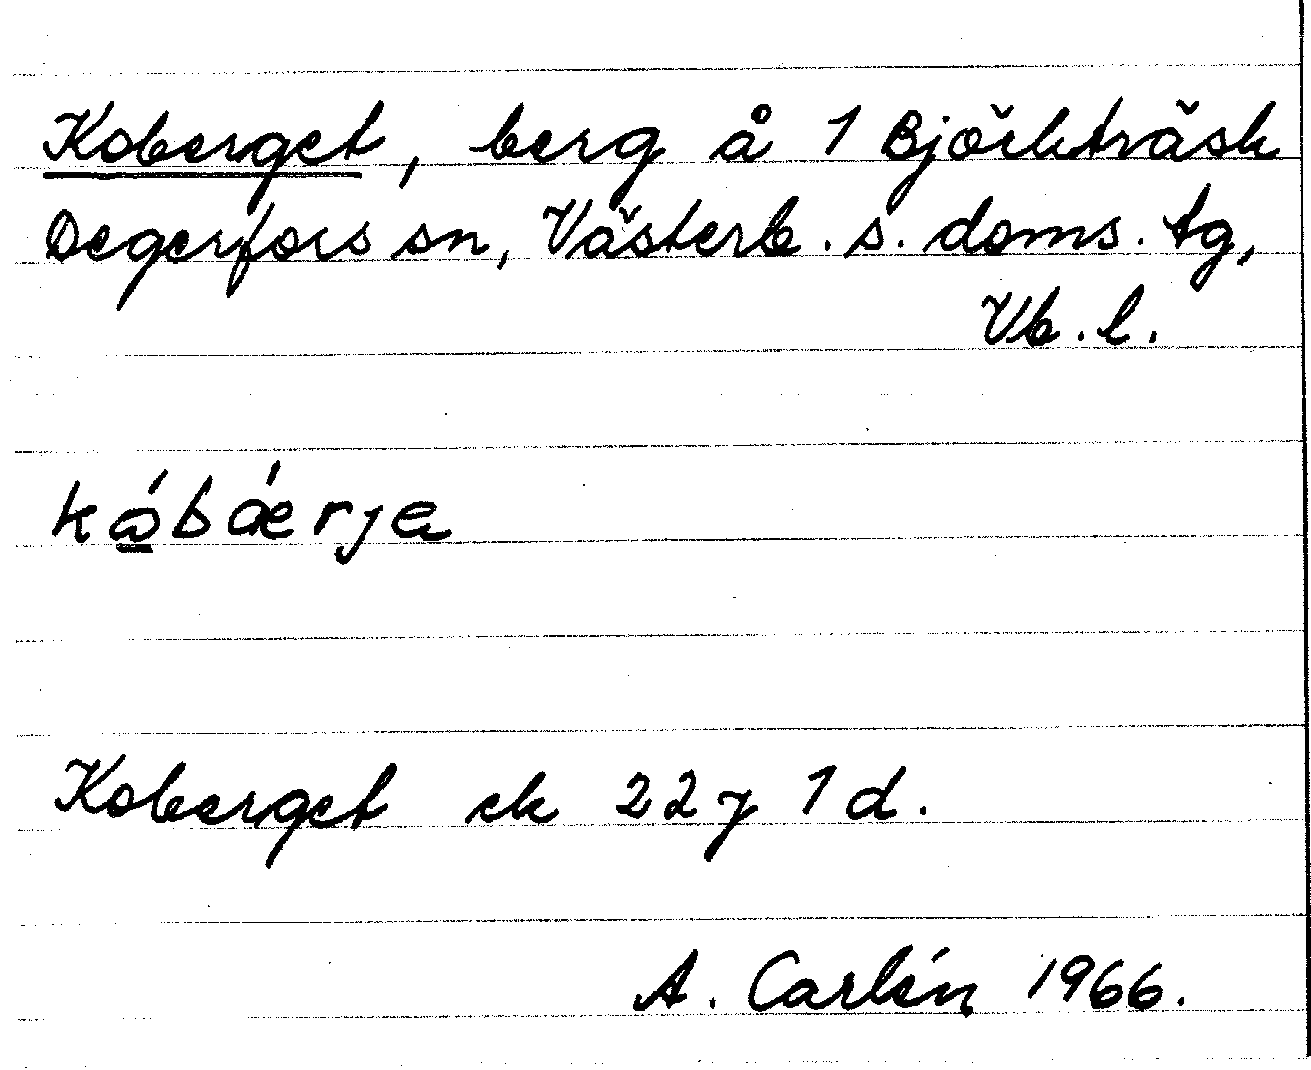 Koberget, berg å 1 Björkträsk
Degerfors sn, Västerb. s. doms. tg,
Vb. l.
kώ̲bǽrja
Koberget ek 22 J 1 d.
A. Carlén 1966.